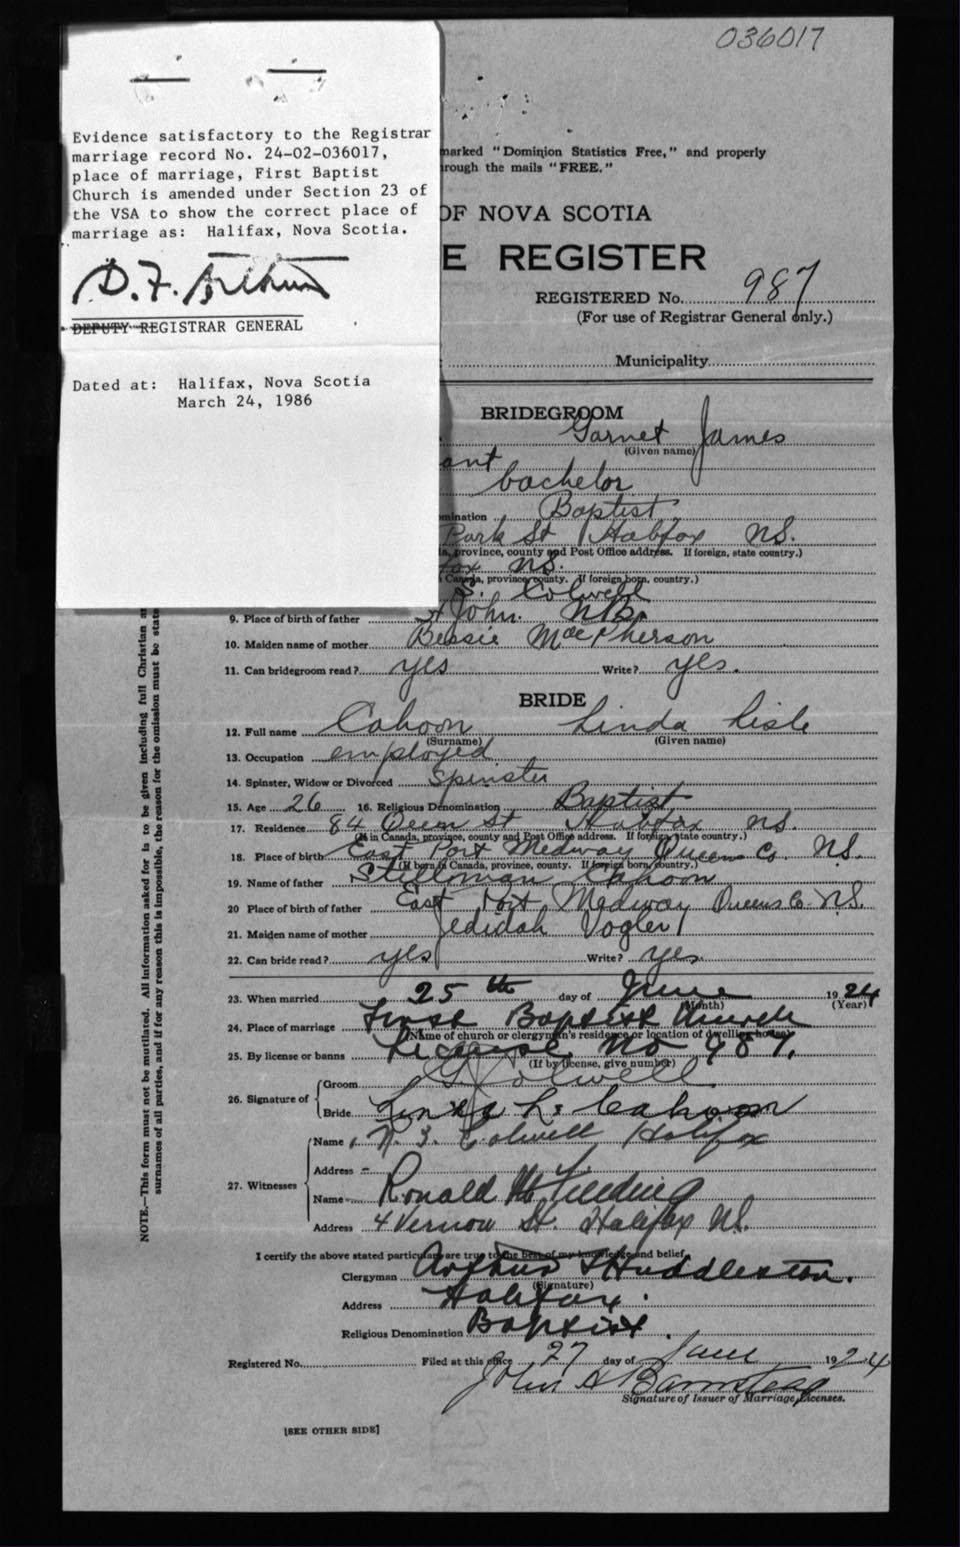 036017
Evidence satisfactory to the Registrar
marriage record No. 24-02-036017,
place of marriage, First Baptist
Church is amended under Section 23 of
the VSA to show the correct place of
marriage as: Halifax, Nova Scotia.
DEPUTY REGISTRAR GENERAL
Dated at: Halifax, Nova Scotia
March 24, 1986
marked "Dominion Statistics Free," and properly
rough the mails "FREE."
OF NOVA SCOTIA
E REGISTER
REGISTERED No. 987
(For use of Registrar General only.)
Municipality
BRIDEGROOM
Garnet James
(Given name)
ant
bachelor
mination Baptist
Park St Halifax NS.
province, county and Post Office address. If foreign, state country.)
fax NS.
Canada, province, county. If foreign born, country.)
S. Colwell
9. Place of birth of father St John. N.B.
10. Maiden name of mother Bessie MacPherson
11. Can bridegroom read? yes Write? yes.
BRIDE
12. Full name Cahoon Linda Lisle
(Surname) (Given name)
13. Occupation employed
14. Spinster, Widow or Divorced Spinster
15. Age 26 16. Religious Denomination Baptist
17. Residence 84 St Halifax NS.
(If in Canada, province, county and Post Office address. If foreign, state country.)
18. Place of birth East Port Medway Queens Co. N.S.
(If born in Canada, province, county. If foreign born, country.)
19. Name of father Stillman Cahoon
20 Place of birth of father East Port Medway Queens Co N.S.
21. Maiden name of mother Jedidah Vogler
22. Can bride read? yes Write? yes
23. When married 25th day of June 1924
(Month) (Year)
24. Place of marriage First Baptist Church
(Name of church or clergyman's residence or location of dwelling house)
25. By license or banns License No 987.
(If by license, give number)
26. Signature of
Groom G J Colwell
Bride Linda L. Cahoon
27. Witnesses
Name Colwell Halifax
Address
Name Ronald M Fielding
Address 4 Vernon St. Halifax N.S.
I certify the above stated particulars are true to the best of my knowledge and belief,
Clergyman Arthur S Huddleston.
(Signature)
Address Halifax.
Religious Denomination Baptist.
Registered No. Filed at this office 27 day of June 1924
John A Barnstead
Signature of Issuer of Marriage Licenses.
[SEE OTHER SIDE]
NOTE.—This form must not be mutilated. All information asked for is to be given including full Christian a
surnames of all parties, and if for any reason this is impossible, the reason for the omission must be state